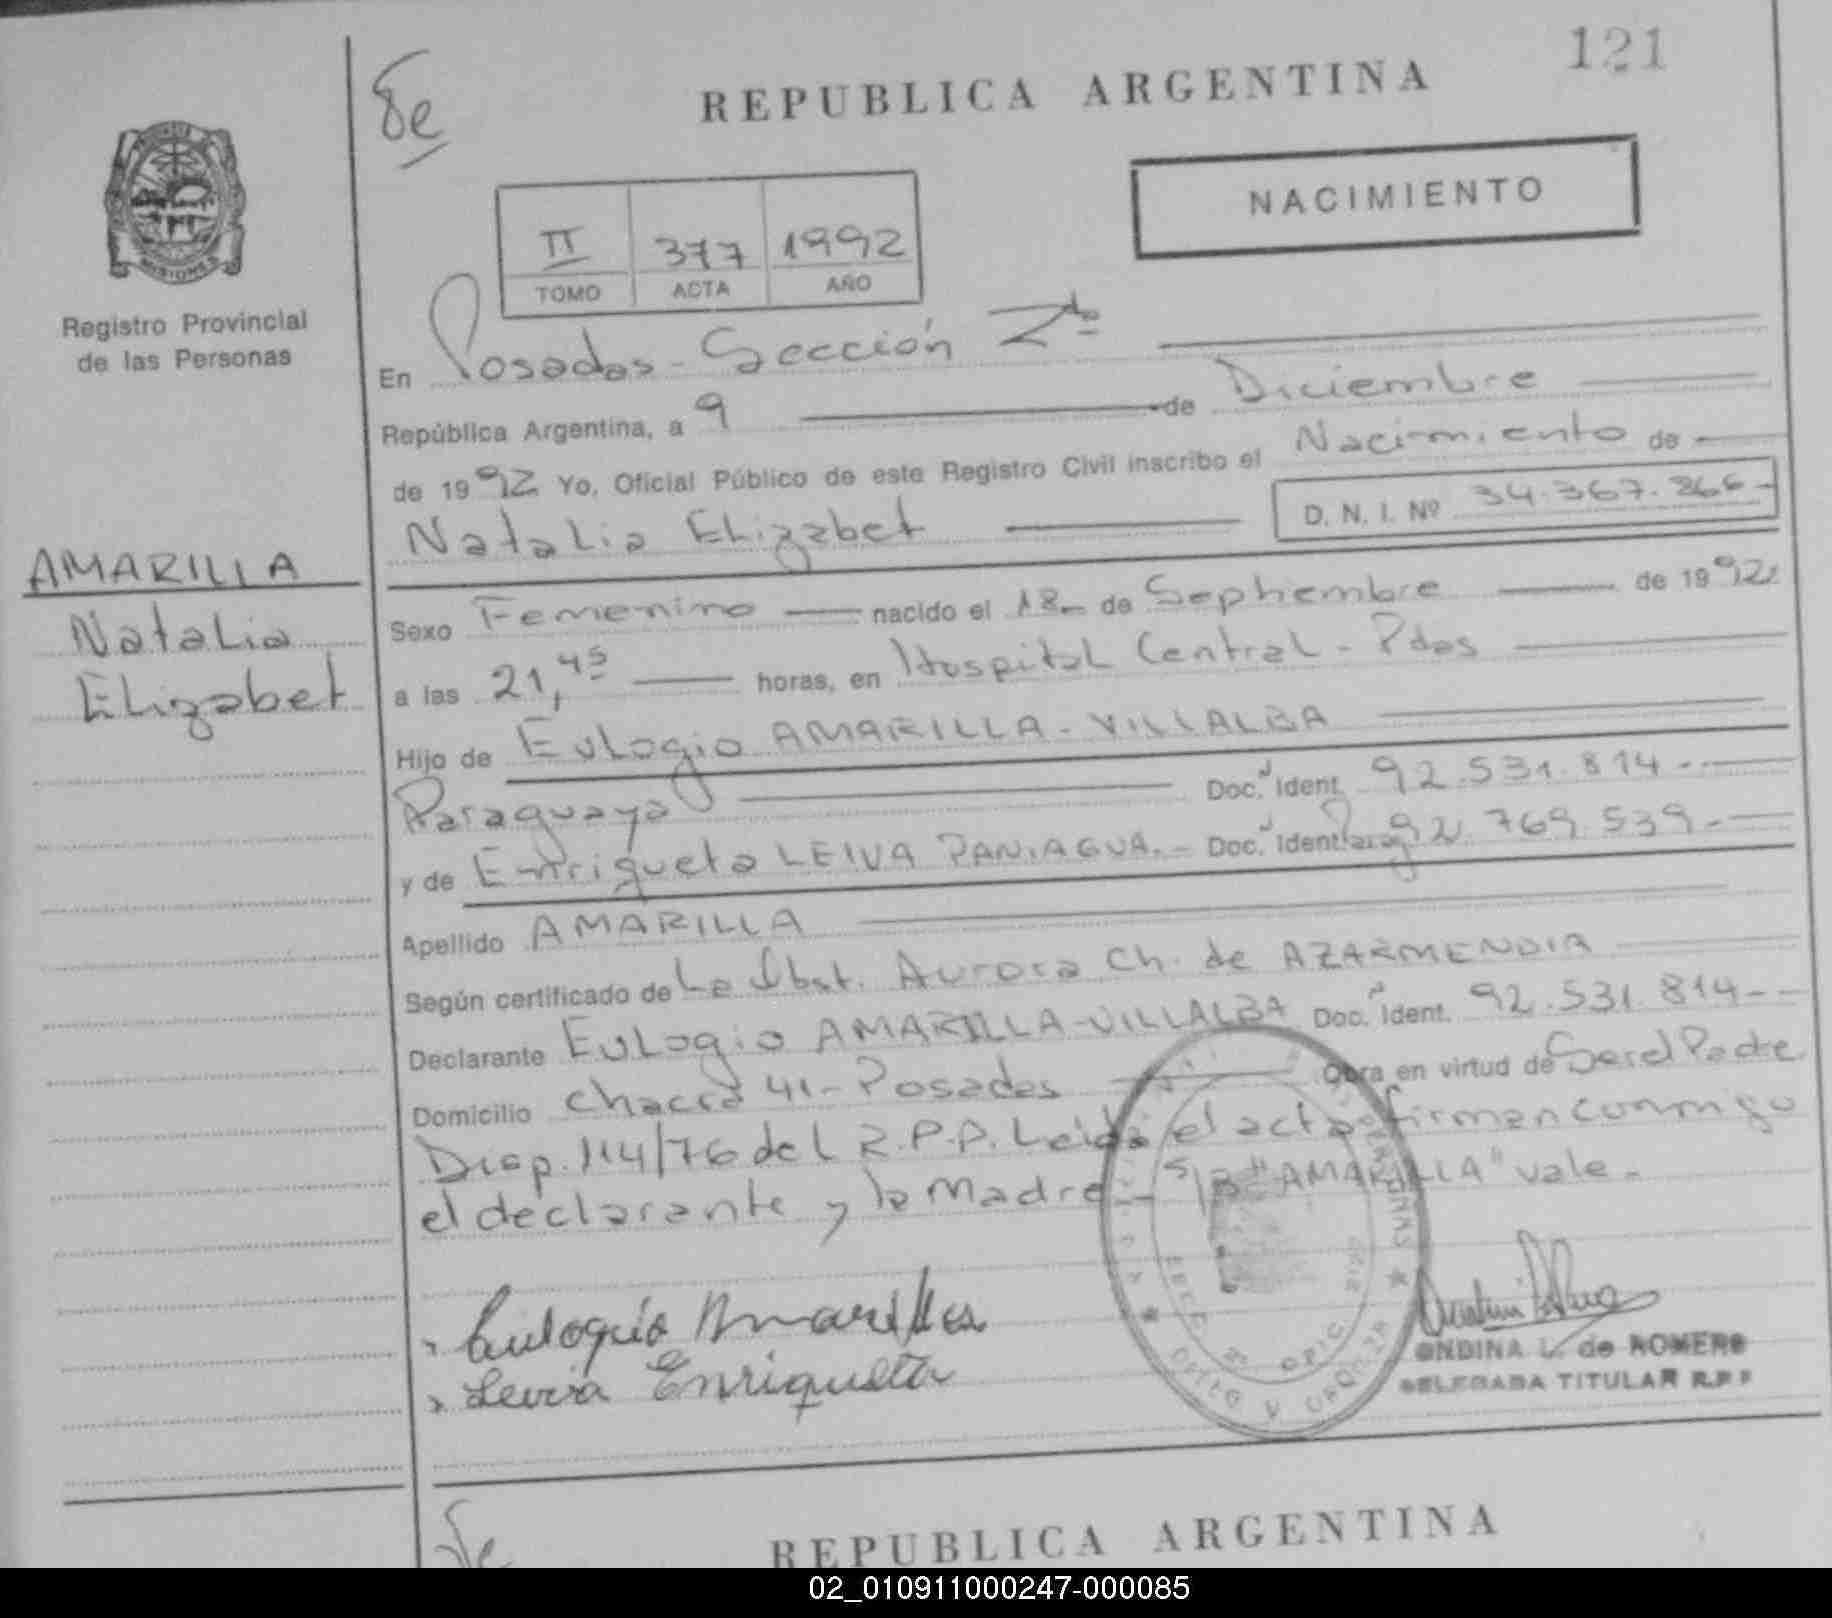 121
REPUBLICA ARGENTINA
NACIMIENTO
II 377 1992
TOMO ACTA AÑO
MISIONES
Registro Provincial
de las Personas
AMARILLA
Natalia
Elizabet
En Posadas - Sección 2da
República Argentina, a 9 de Diciembre
de 1992 Yo, Oficial Público de este Registro Civil inscribo el Nacimiento de
Natalia Elizabet D. N. I. Nº 34.367.266-
Sexo Femenino nacido el 18- de Septiembre de 1992
a las 21,45 horas, en Hospital Central - Pdas
Hijo de Eulogio AMARILLA - VILLALBA
Paraguaya Doc. Ident. 92.531.814 -
y de Enriqueta LEIVA PANIAGUA.- Doc. Ident. Parag 92.769.539-
Apellido AMARILLA
Según certificado de La Obst. Aurora Ch. de AZARMENDIA
Declarante EULogio AMARILLA-VILLALBA Doc. Ident. 92.531.814--
Domicilio Chacra 41- Posadas Obra en virtud de Ser el Padre
Disp. 114/76 del R.P.P. Leida el acta firman conmigo
el declarante y la Madre - S/R "AMARILLA" vale -
Eulogio Amarilla
Leiva Enriqueta
ONDINA L. de ROMERO
DELEGADA TITULAR R.P.P
REPUBLICA ARGENTINA
02_010911000247-000085